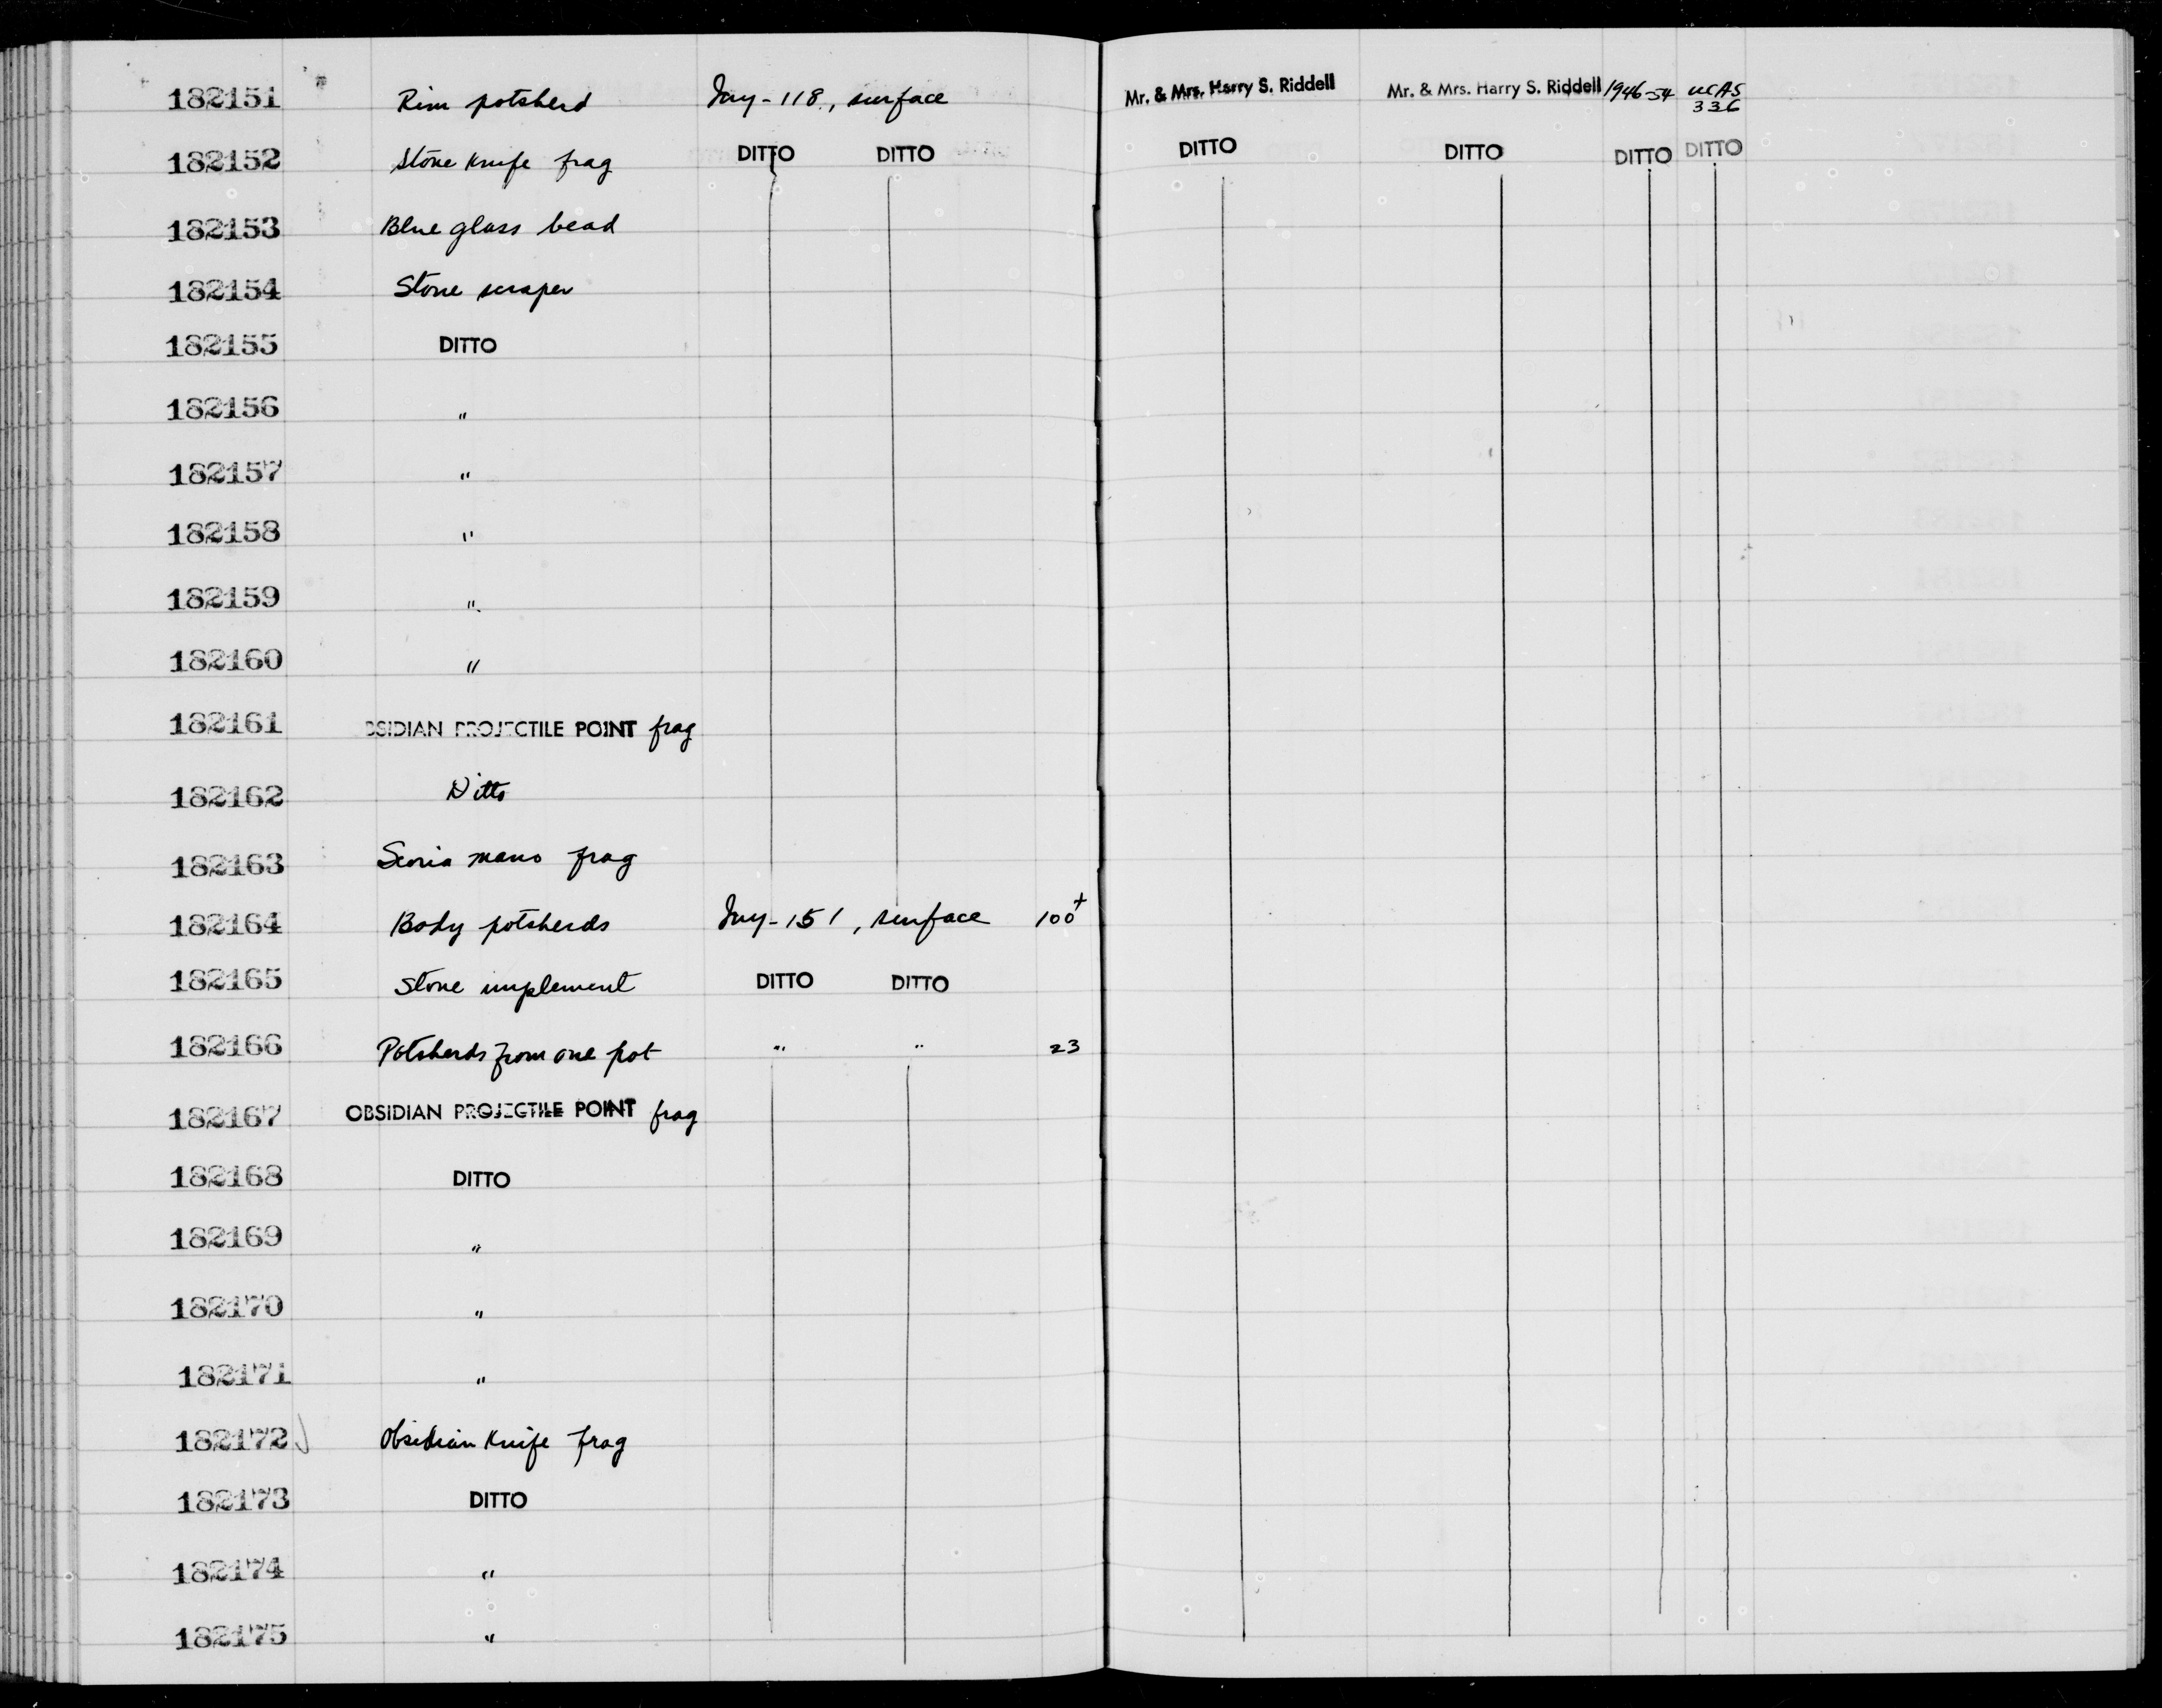 182151 Rim potsherd Iny-118, surface Mr. & Mrs. Harry S. Riddell Mr. & Mrs. Harry S. Riddell 1946-54 UCAS 336
182152 Stone Knife frag DITTO DITTO DITTO DITTO DITTO DITTO
182153 Blue glass bead
182154 Stone scraper
182155 DITTO
182156 "
182157 "
182158 "
182159 "
182160 "
182161 BSIDIAN PROJECTILE POINT frag
182162 Ditto
182163 Scoria mano frag
182164 Body potsherds Iny-151, surface 100+
182165 Stone implement DITTO DITTO
182166 Potsherds from one pot " " 23
182167 OBSIDIAN PROJECTILE POINT frag
182168 DITTO
182169 "
182170 "
182171 "
182172 Obsidian Knife frag
182173 DITTO
182174 "
182175 "